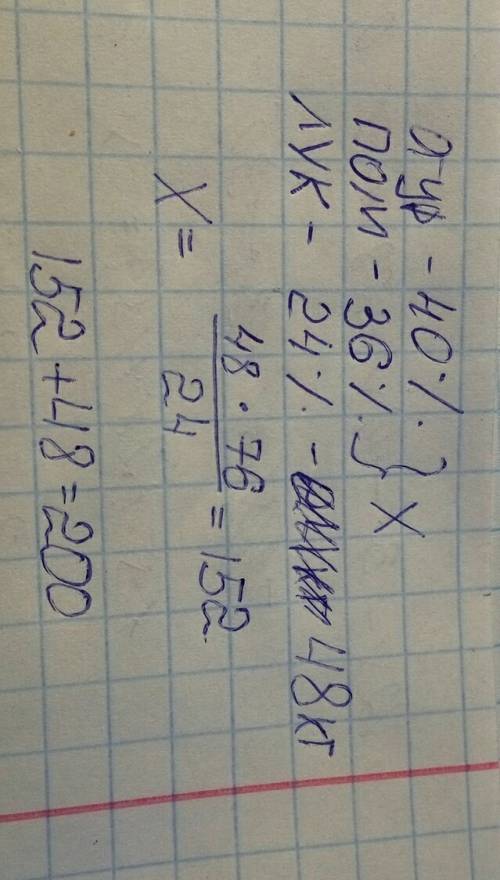 огур - 40%. } X
пом - 36%.
лук - 24%. - 48кг
X = 48 · 76 / 24 = 152
152 + 48 = 200